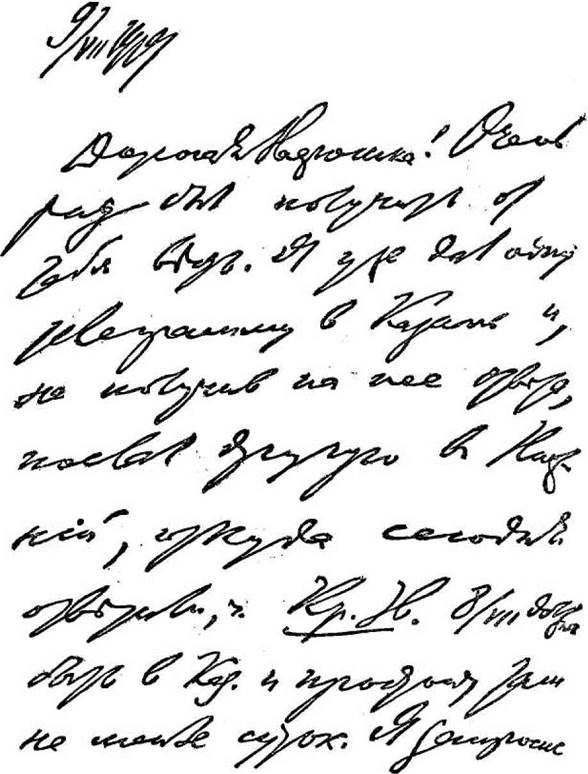 9/VII 1919
Дорогая Надюшка! Очень
рад был получить от
тебя весть. Я уже дал одну
телеграмму в Казань и,
не получив на нее ответа,
послал другую в Ниж-
ний, откуда сегодня
ответили, ч. Кр. Зв. 8/VII должна
быть в Каз. и простоит там
не менее суток. Я запросил